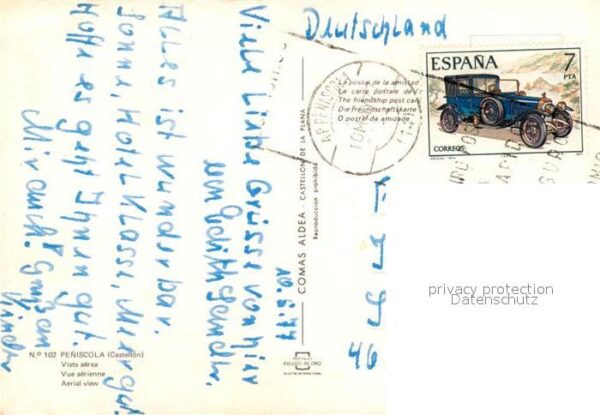 Deutschland
Viele liebe Grüsse von hier
von Edith
Alles ist wunderbar.
Sonne, Hotel Klasse, Meer gut.
Hoffe es geht Ihnen gut.
Mir auch!
Kinder
10.5.77
46
ESPAÑA 7
PTA
CORREOS
La postal de la amistad
La carte postale de l'
The friendship post card
Die Freundschaftskarte
O postal da amizade
COMAS ALDEA - CASTELLON DE LA PLANA
Reproduccion prohibida
N.º 102 PEÑISCOLA (Castellón)
Vista aérea
Vue aérienne
Aerial view
POSTALES
ESCUDO DE ORO
privacy protection
Datenschutz